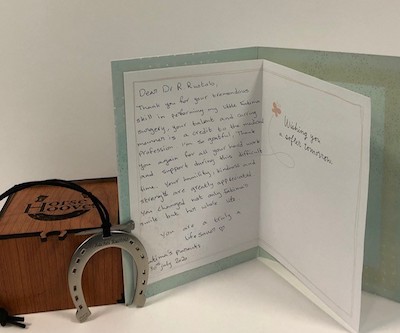 Dear Dr R
Thank you for your tremendous
skill in performing my little
surgery, your talent and caring
manner is a credit to the medical
profession. I'm so grateful. Thank
you again for all your hard work
and support during this difficult
time. Your humility, kindness and
strength are greatly appreciated
You changed not only
smile but her whole life
You are a truly a
Life Saver
parents
July 2020
Wishing you
a
Horse
Hooves